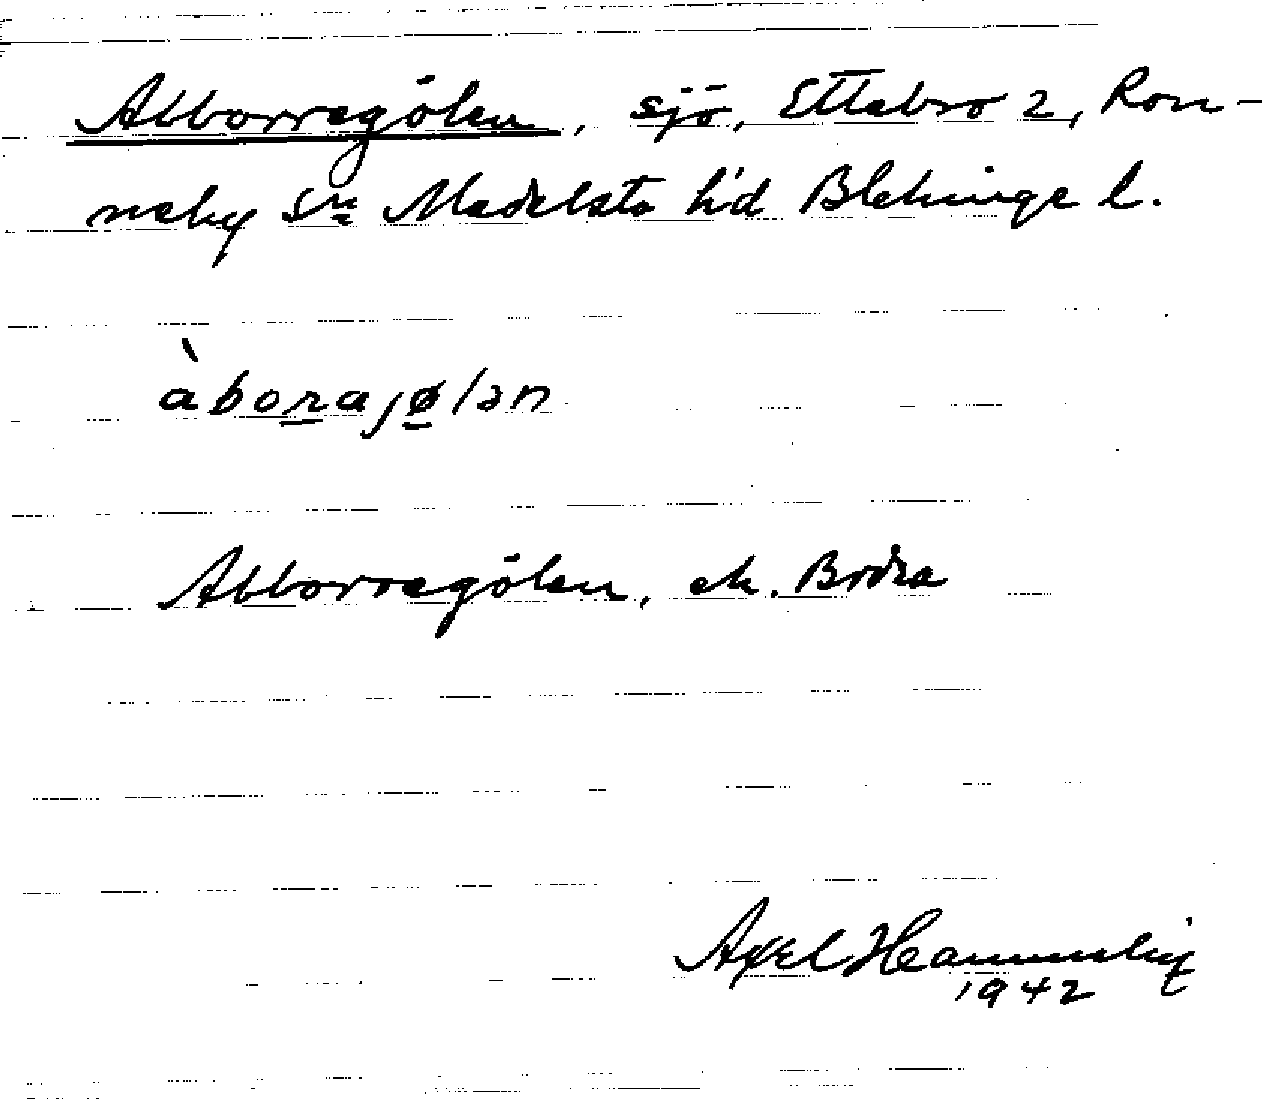 Abborregölen, sjö, Ettebro 2, Ron-
neby sn Medelsta h'd Blekinge l.
àborajølən
Abborregölen, ek. Södra
Axel Hammelig
1942